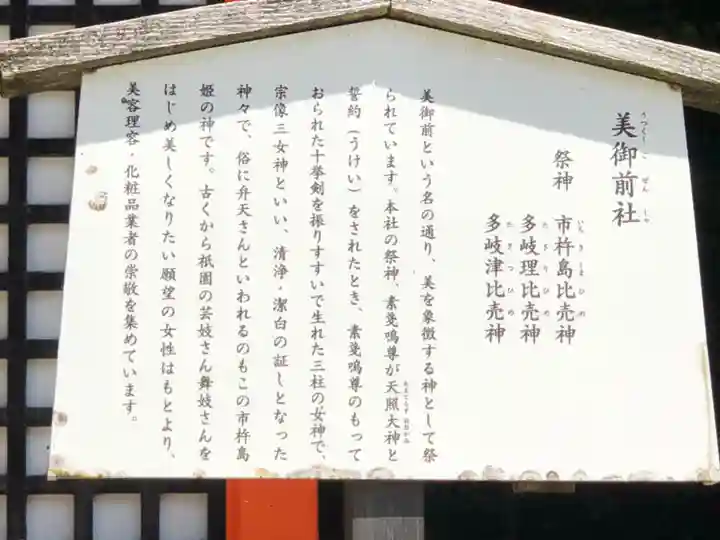 美御前社
うつくしごぜんしゃ
祭神　市杵島比売神
いちきしまひめ
多岐理比売神
たぎりひめ
多岐津比売神
たぎつひめ
美御前という名の通り、美を象徴する神として祭
られています。本社の祭神、素戔嗚尊が天照大神と
あまてらすおおかみ
誓約（うけい）をされたとき、素戔嗚尊のもって
おられた十拳剣を振りすすいで生れた三柱の女神で、
宗像三女神といい、清浄・潔白の証しとなった
神々で、俗に弁天さんといわれるのもこの市杵島
姫の神です。古くから祇園の芸妓さん舞妓さんを
はじめ美しくなりたい願望の女性はもとより、
美容理容・化粧品業者の崇敬を集めています。